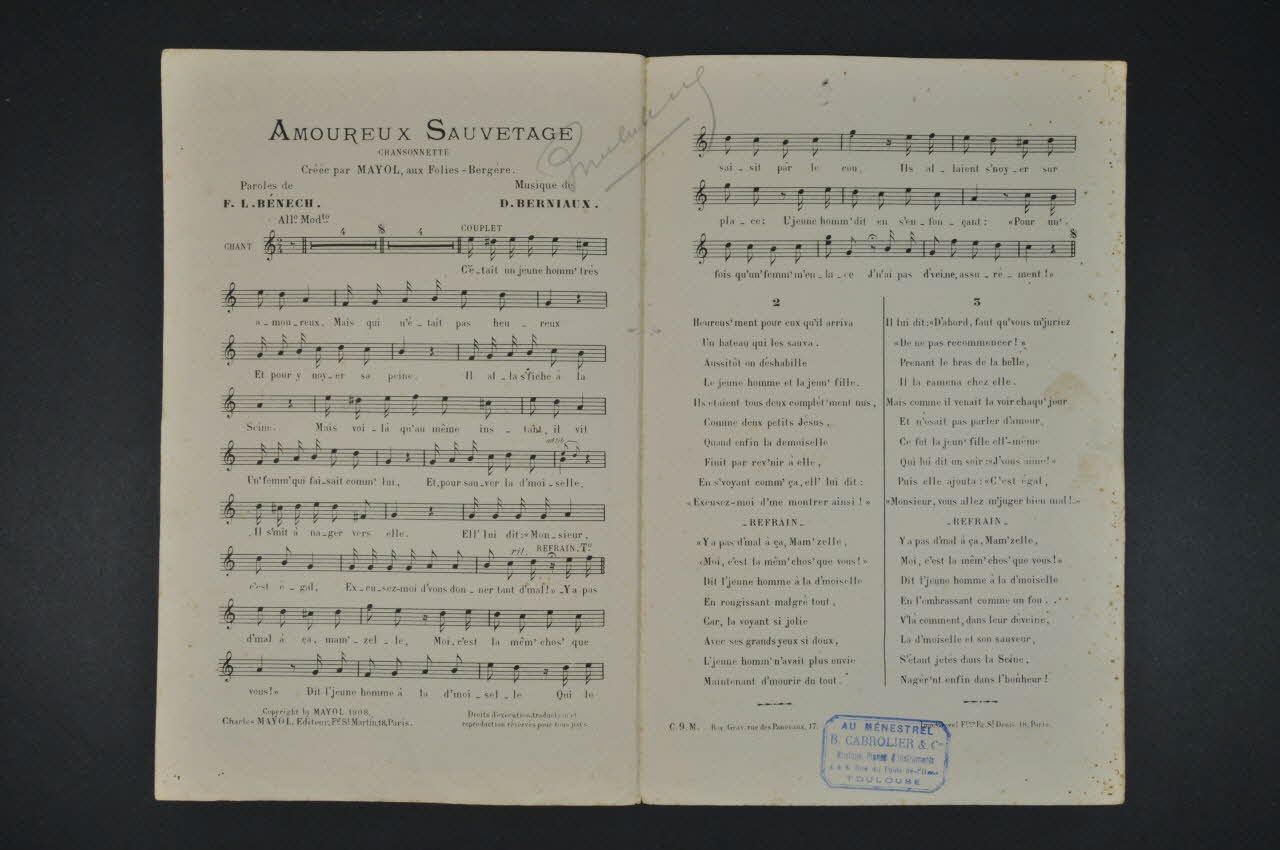 AMOUREUX SAUVETAGE
CHANSONNETTE
Créée par MAYOL, aux Folies-Bergère.
Paroles de
F. L. BÉNECH.
Musique de
D. BERNIAUX.
All.º Mod.to
4 4 COUPLET
CHANT
C'é_tait un jeune homm' très
a_mou_reux, Mais qui n'é_tait pas heu_reux
Et pour y noy_er sa peine. Il al_la s'fiche à la
Seine. Mais voi_là qu'au même ins_tant, il vit
Un' femm' qui fai_sait comm' lui, Et, pour sau_ver la d'moi_selle,
Il s'mit à na_ger vers elle. Ell' lui dit: «Mon_sieur,
rit. REFRAIN. Tº
c'est é_gal, Ex_cu_sez-moi d'vous don_ner tant d'mal!» _Y a pas
d'mal à ça, mam'_zel_le, Moi, c'est la mêm' chos' que
vous!» Dit l'jeune homme à la d'moi_sel_le Qui le
Copyright by MAYOL 1908.
Charles MAYOL, Editeur, Fg St Martin, 18, Paris.
Droits d'exécution, traduction et
reproduction réservés pour tous pays.
sai_sit par le cou. Ils al_laient s'noy_er sur
pla_ce; L'jeune homm' dit en s'en_fon_çant: «Pour un'
fois qu'un' femm' m'en_la_ce J'n'ai pas d'veine, assu_ré_ment!»
2
Heureus'ment pour eux qu'il arriva
Un bateau qui les sauva.
Aussitôt on déshabille
Le jeune homme et la jeun' fille.
Ils étaient tous deux complèt'ment nus,
Comme deux petits Jésus,
Quand enfin la demoiselle
Finit par rev'nir à elle,
En s'voyant comm' ça, ell' lui dit:
«Excusez-moi d'me montrer ainsi!»
_REFRAIN_
«Y a pas d'mal à ça, Mam'zelle,
«Moi, c'est la mêm' chos' que vous!»
Dit l'jeune homme à la d'moiselle
En rougissant malgré tout,
Car, la voyant si jolie
Avec ses grands yeux si doux,
L'jeune homm' n'avait plus envie
Maintenant d'mourir du tout.
3
Il lui dit: «D'abord, faut qu'vous m'juriez
«De ne pas recommencer!»
Prenant le bras de la belle,
Il la ramena chez elle.
Mais comme il venait la voir chaqu' jour
Et n'osait pas parler d'amour,
Ce fut la jeun' fille ell'-même
Qui lui dit un soir: «J'vous aime!»
Puis elle ajouta: «C'est égal,
«Monsieur, vous allez m'juger bien mal!_
_REFRAIN_
Y a pas d'mal à ça, Mam'zelle,
Moi, c'est la mêm' chos' que vous!»
Dit l'jeune homme à la d'moiselle
En l'embrassant comme un fou...
V'là comment, dans leur déveine,
La d'moiselle et son sauveur,
S'étant jetés dans la Seine,
Nagèr'nt enfin dans l'bonheur!
C. 9. M. Roy, Grav. rue des Panoyaux, 17. Fg St Denis, 18, Paris.
AU MÉNESTREL
B. CABROLIER & Cie
Musique, Pianos & Instruments
TOULOUSE